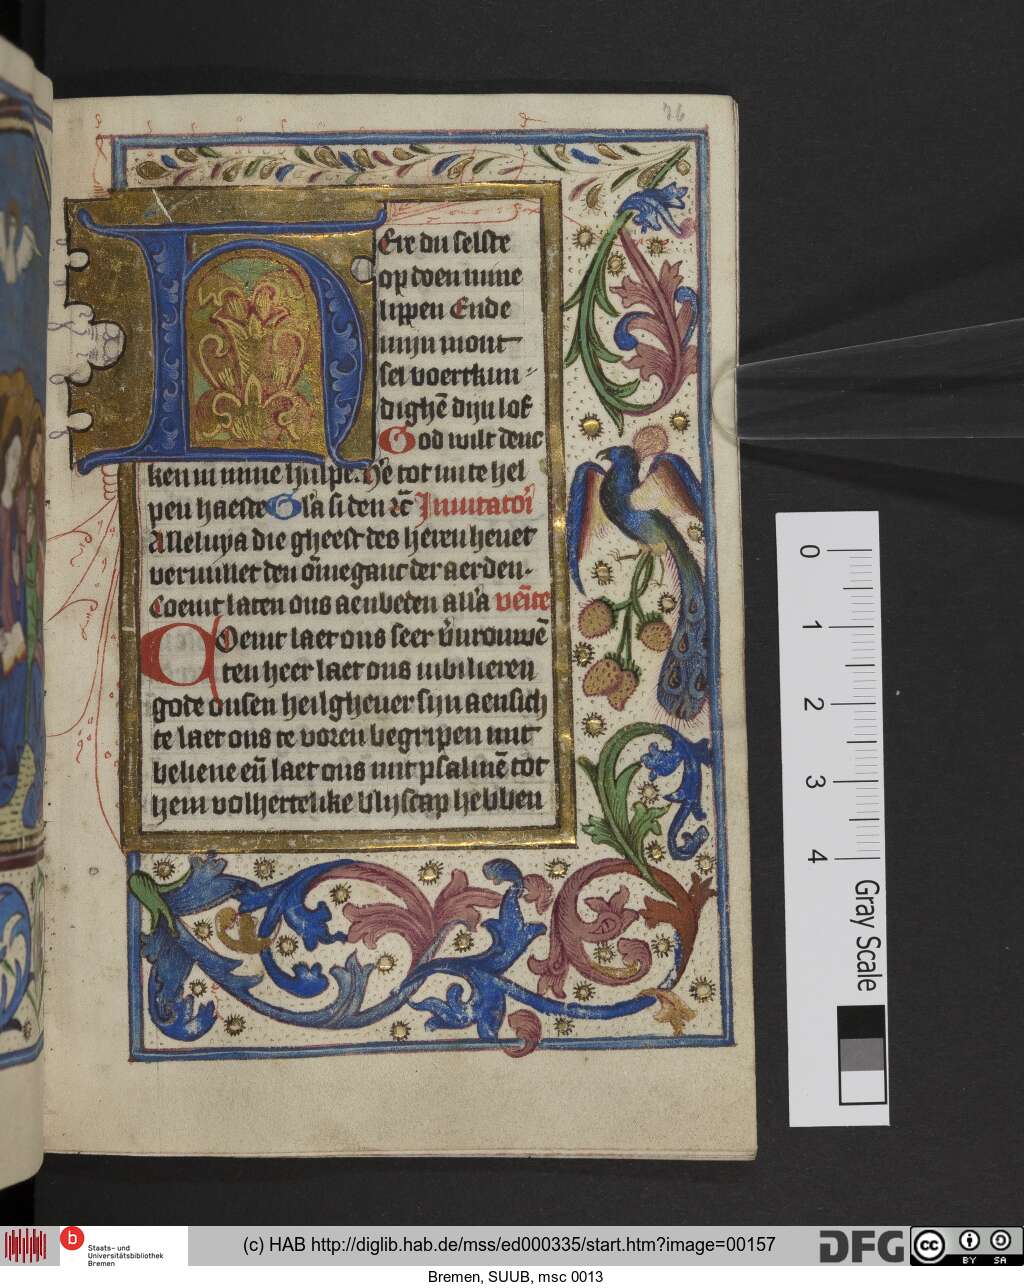 76
HEre du selste
op doen mine
lippen Ende
mijn mont
sel voertkun⸗
dighē dijn lof
God wilt denc
ken in mine hulpe. Hē tot mi te hel
pen haeste Gl'a si den &c̄ Inuitatoī
Alleluya die gheest des heren heuet
veruullet den ōmeganc der aerden.
Coemt laten ons aenbeden all'a venīte
Coemt laet ons seer v'urouwē
ten heer laet ons iubilieren
gode onsen heilgheuer sijn aensich
te laet ons te voren begripen mit
beliene en̄ laet ons mit psalmē tot
hem volhertelike blijscap hebben
0
1
2
3
4
Gray Scale
b
Staats- und
Universitätsbibliothek
Bremen
(c) HAB http://diglib.hab.de/mss/ed000335/start.htm?image=00157
DFG
cc
BY SA
Bremen, SUUB, msc 0013